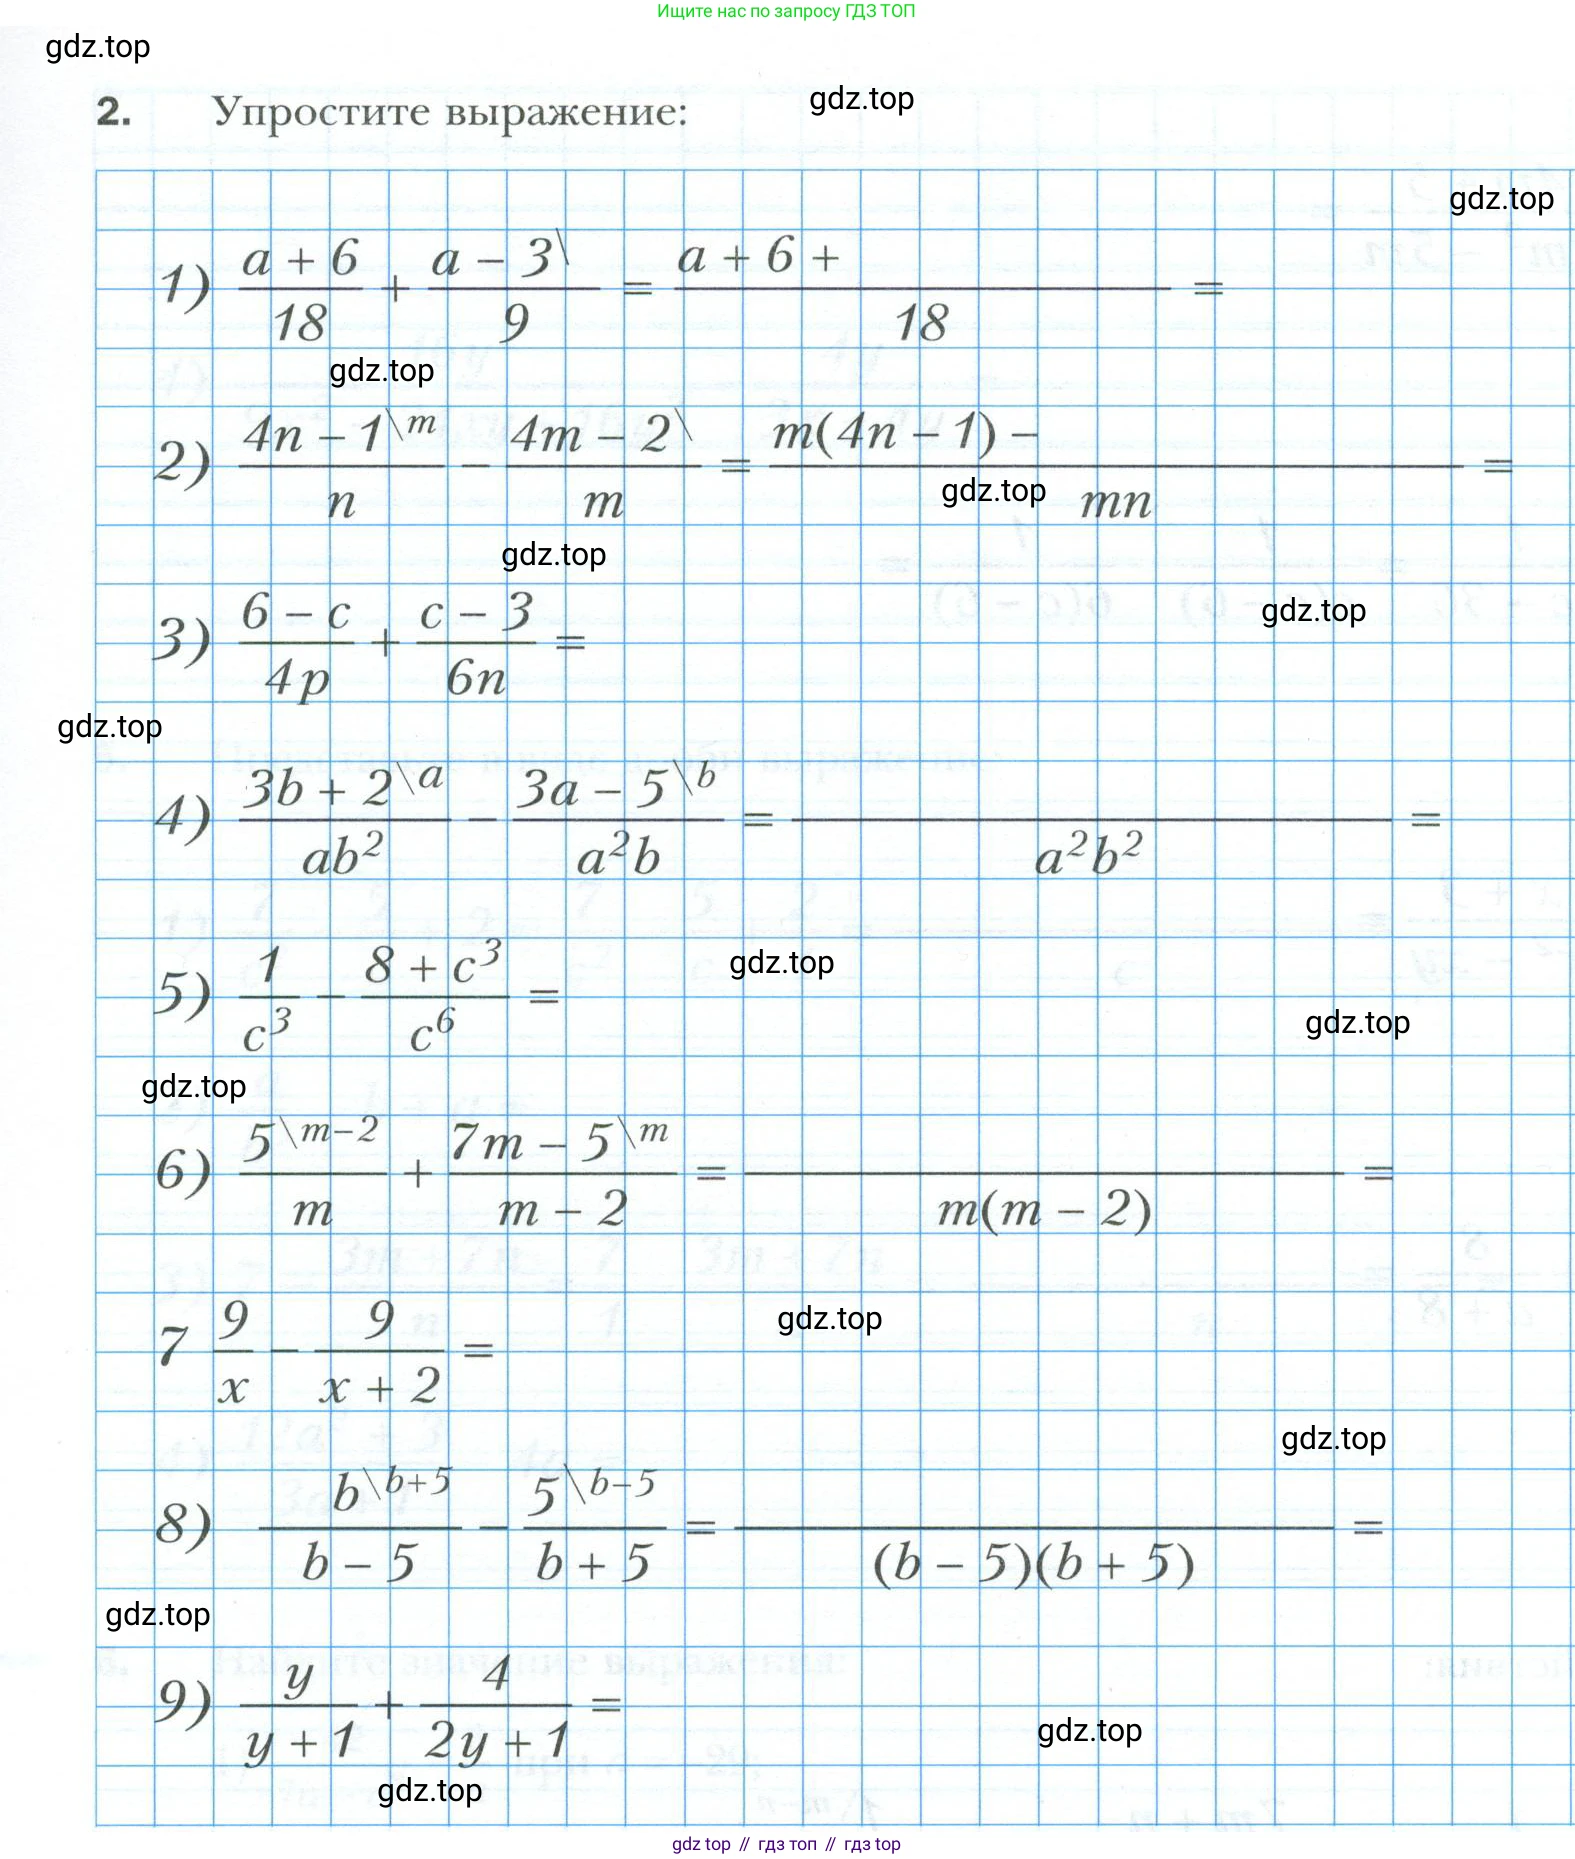 Ищите нас по запросу ГДЗ ТОП
gdz.top
2. Упростите выражение:
gdz.top
gdz.top
1) (a + 6)/18 + (a − 3\)/9 = (a + 6 +)/18 =
gdz.top
2) (4n − 1\m)/n − (4m − 2\)/m = (m(4n − 1) −)/mn =
gdz.top
gdz.top
3) (6 − c)/4p + (c − 3)/6n =
gdz.top
gdz.top
4) (3b + 2\a)/ab² − (3a − 5\b)/a²b = /a²b² =
5) 1/c³ − (8 + c³)/c⁶ =
gdz.top
gdz.top
gdz.top
6) (5\m−2)/m + (7m − 5\m)/(m − 2) = /m(m − 2) =
7 9/x − 9/(x + 2) =
gdz.top
gdz.top
8) (b\b+5)/(b − 5) − (5\b−5)/(b + 5) = /(b − 5)(b + 5) =
gdz.top
9) y/(y + 1) + 4/(2y + 1) =
gdz.top
gdz.top
gdz top // гдз топ // гдз top